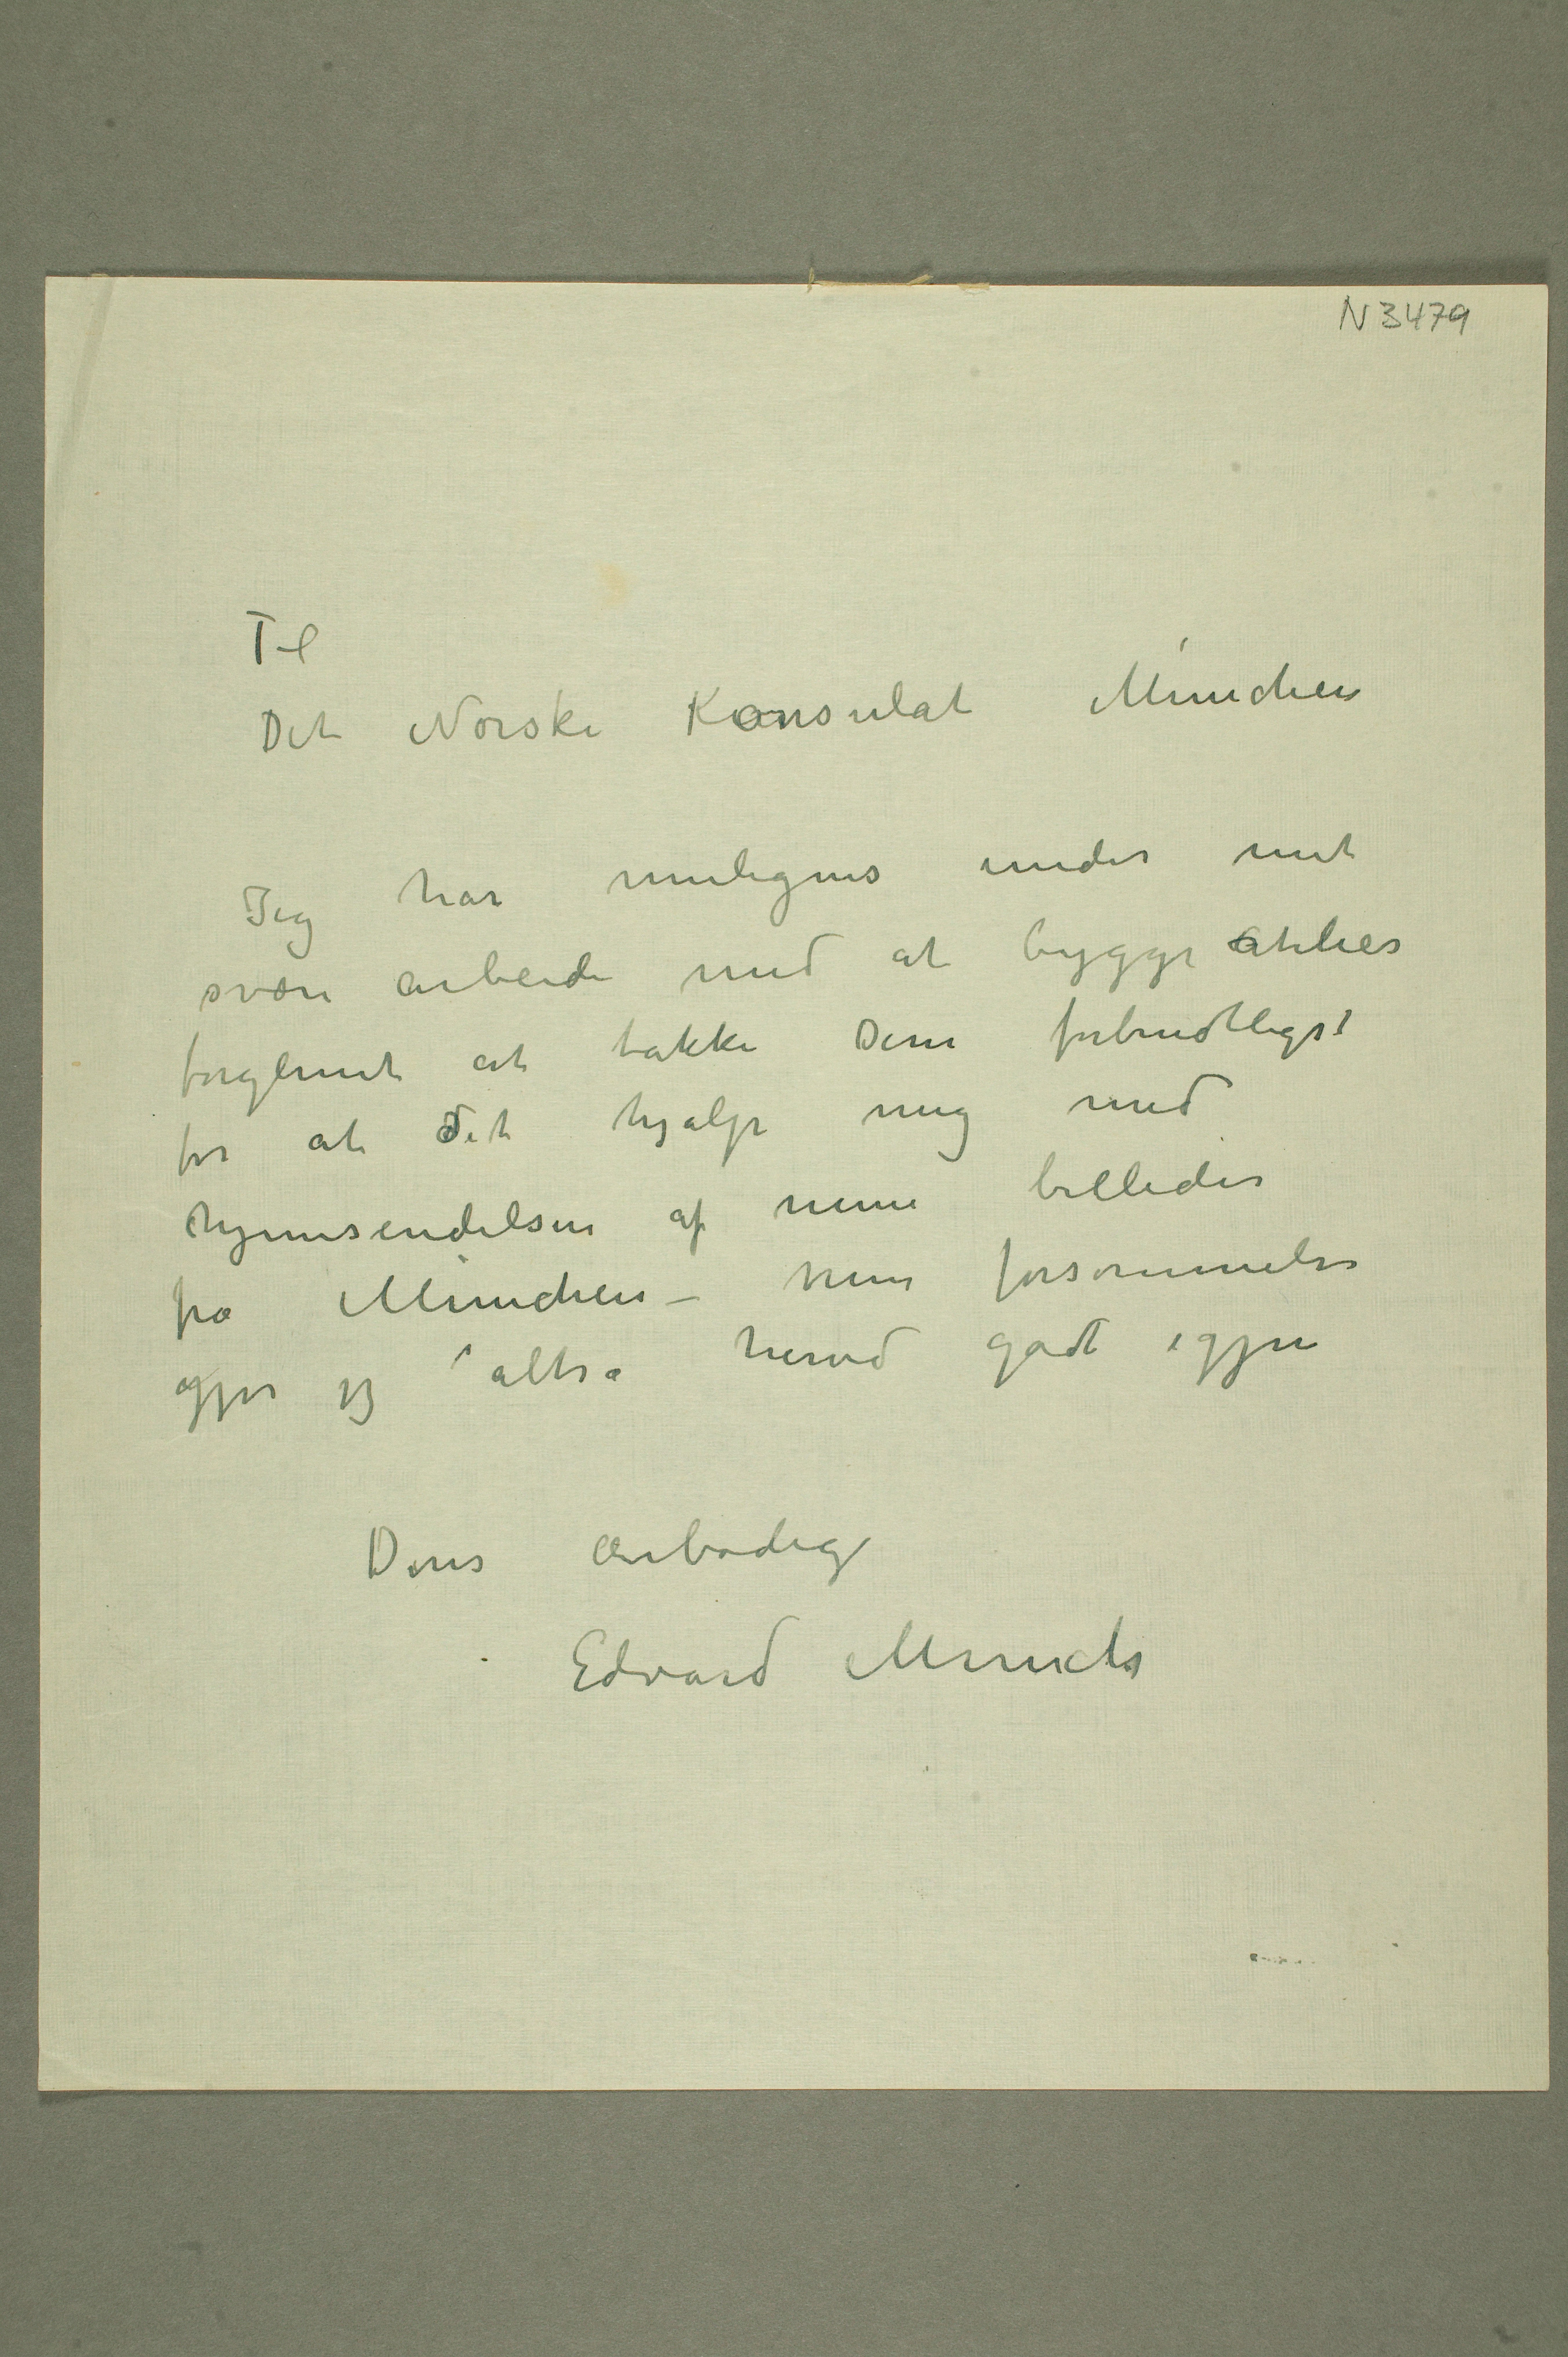 N 3479
Til
Det Norske Konsulat München
Jeg har muligens under mit
svære arbeide med at bygge atelier
forglemt at takke Dem forbindtligst
for at det hjalp mig med
hjemsendelsen af mine billeder
fra München – Min forsømmelse
gjør jeg altså herved godt igjen
Deres ærbødige
Edvard Munch